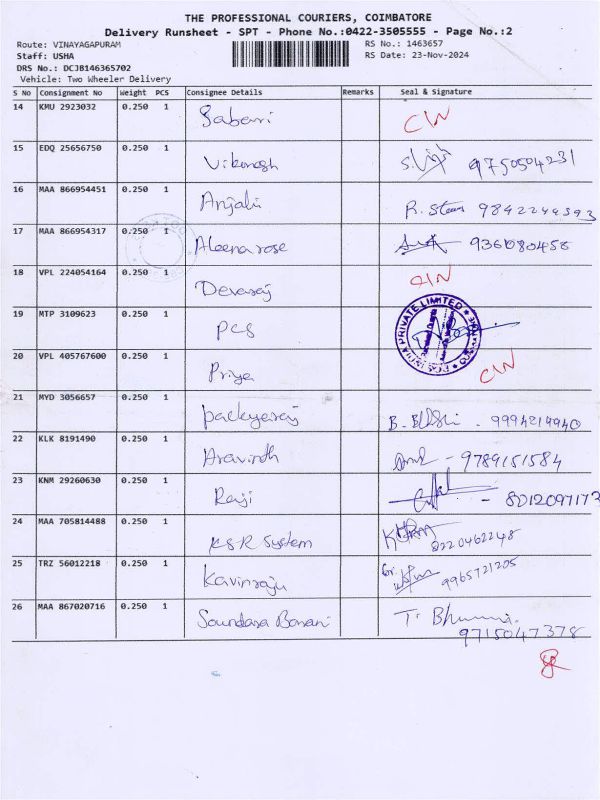 THE PROFESSIONAL COURIERS, COIMBATORE
Delivery Runsheet - SPT - Phone No.:0422-3505555 - Page No.:2
Route: VINAYAGAPURAM RS No.: 1463657
Staff: USHA RS Date: 23-Nov-2024
DRS No.: DCJB146365702
Vehicle: Two Wheeler Delivery
S No Consignment No Weight PCS Consignee Details Remarks Seal & Signature
14 KMU 2923032 0.250 1 Sabari
15 EDQ 25656750 0.250 1 9750504231
16 MAA 866954451 0.250 1 Anjali
17 MAA 866954317 0.250 1 Aleena rose 9361080458
18 VPL 224054164 0.250 1 Devaraj
19 MTP 3109623 0.250 1 PCS PRIVATE LIMITED
20 VPL 405767600 0.250 1 Priya
21 MYD 3056657 0.250 1 9994219940
22 KLK 8191490 0.250 1 Aravindh 9789151584
23 KNM 29260630 0.250 1 Raji - 8012097173
24 MAA 705814488 0.250 1 KSR System 8220462248
25 TRZ 56012218 0.250 1 Kavinraju 9965721205
26 MAA 867020716 0.250 1 9715047378